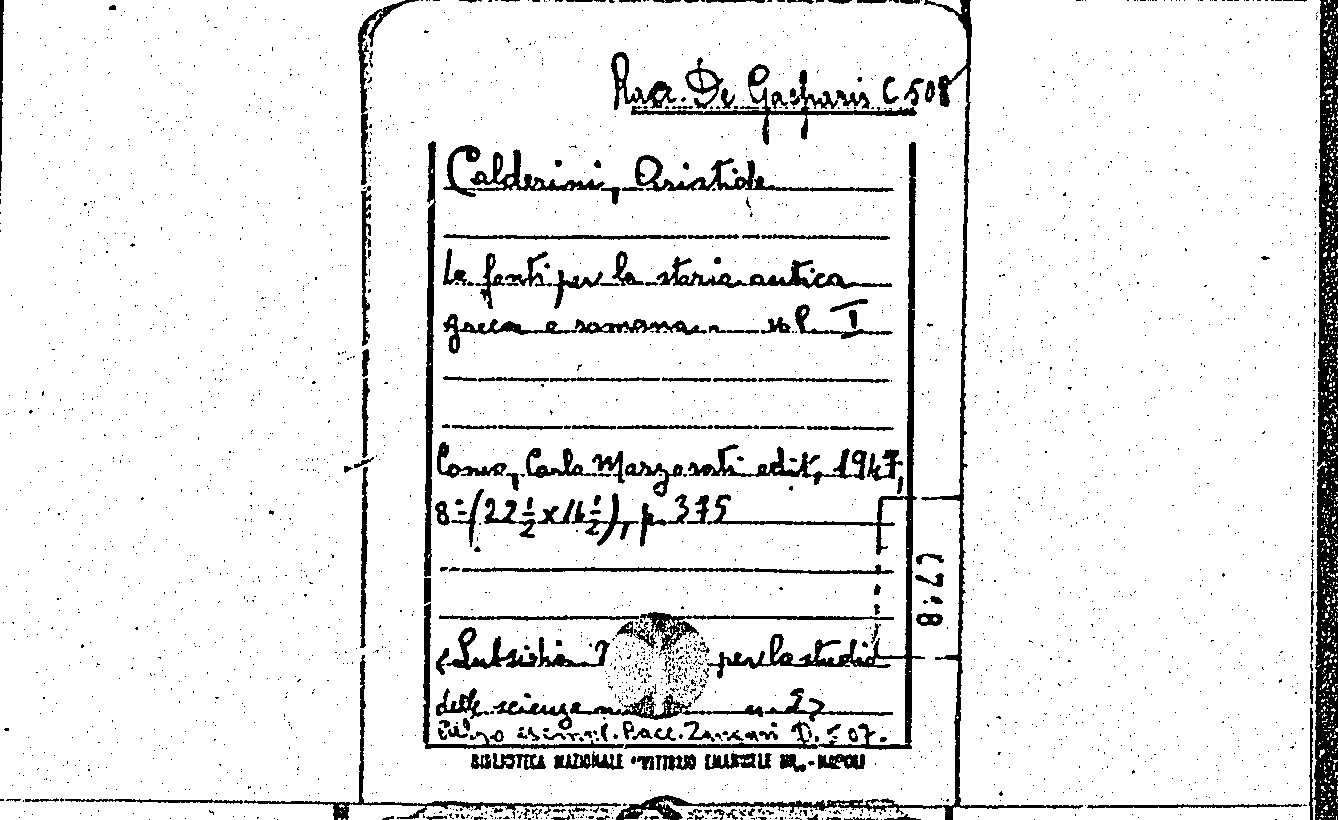 Racc. De Gasparis C 508
Calderini, Aristide
Le fonti per la storia antica
greca e romana. vol. I
Como, Carlo Marzorati edit, 1947,
8º (22 1/2 x 16 1/2), p. 375
(Subsidia per lo studio
delle scienze n. 2)
esempl. Racc. Zancani D. 507.
BIBLIOTECA NAZIONALE "VITTORIO EMANUELE III" - NAPOLI